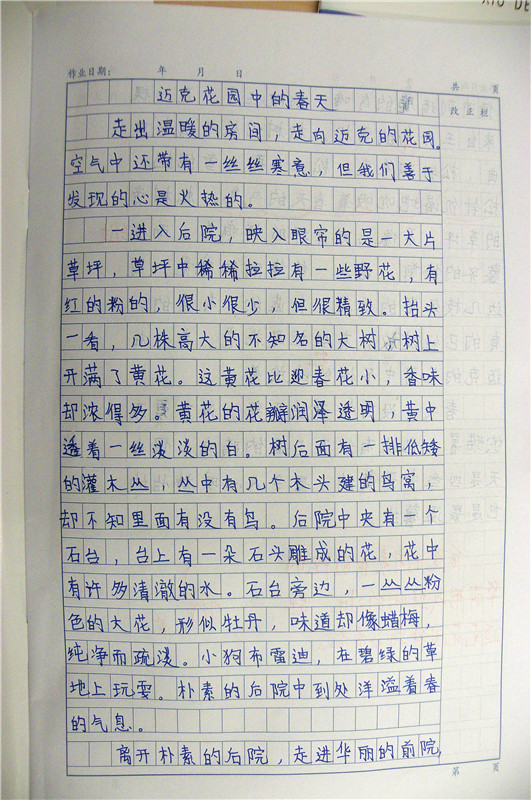 XIU DE
作业日期： 年 月 日 共 页
迈克花园中的春天 改正栏
走出温暖的房间，走向迈克的花园。
空气中还带有一丝丝寒意，但我们善于
发现的心是火热的。
一进入后院，映入眼帘的是一大片
草坪，草坪中稀稀拉拉有一些野花，有
红的粉的，很小很少，但很精致。抬头
一看，几株高大的不知名的大树，树上
开满了黄花。这黄花比迎春花小，香味
却浓得多。黄花的花瓣润泽透明，黄中
透着一丝淡淡的白。树后面有一排低矮
的灌木丛，丛中有几个木头建的鸟窝，
却不知里面有没有鸟。后院中央有一个
石台，台上有一朵石头雕成的花，花中
有许多清澈的水。石台旁边，一丛丛粉
色的大花，形似牡丹，味道却像蜡梅，
纯净而疏淡。小狗布雷迪，在碧绿的草
地上玩耍。朴素的后院中到处洋溢着春
的气息。
离开朴素的后院，走进华丽的前院，
第 页